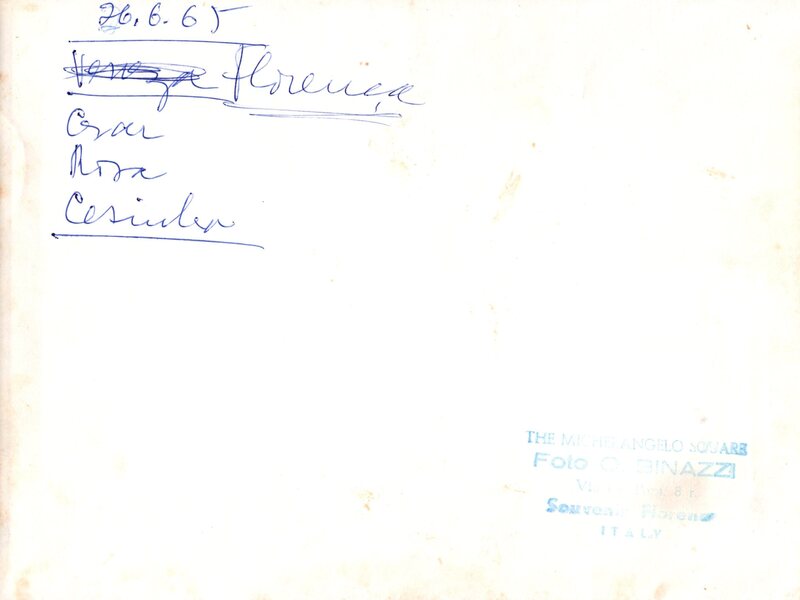 26.6.65
Veneza Florença
Cesar
Rosa
Cesinha
THE MICHELANGELO SQUARE
Foto G. BINAZZI
8 r.
Souvenir Florence
ITALY